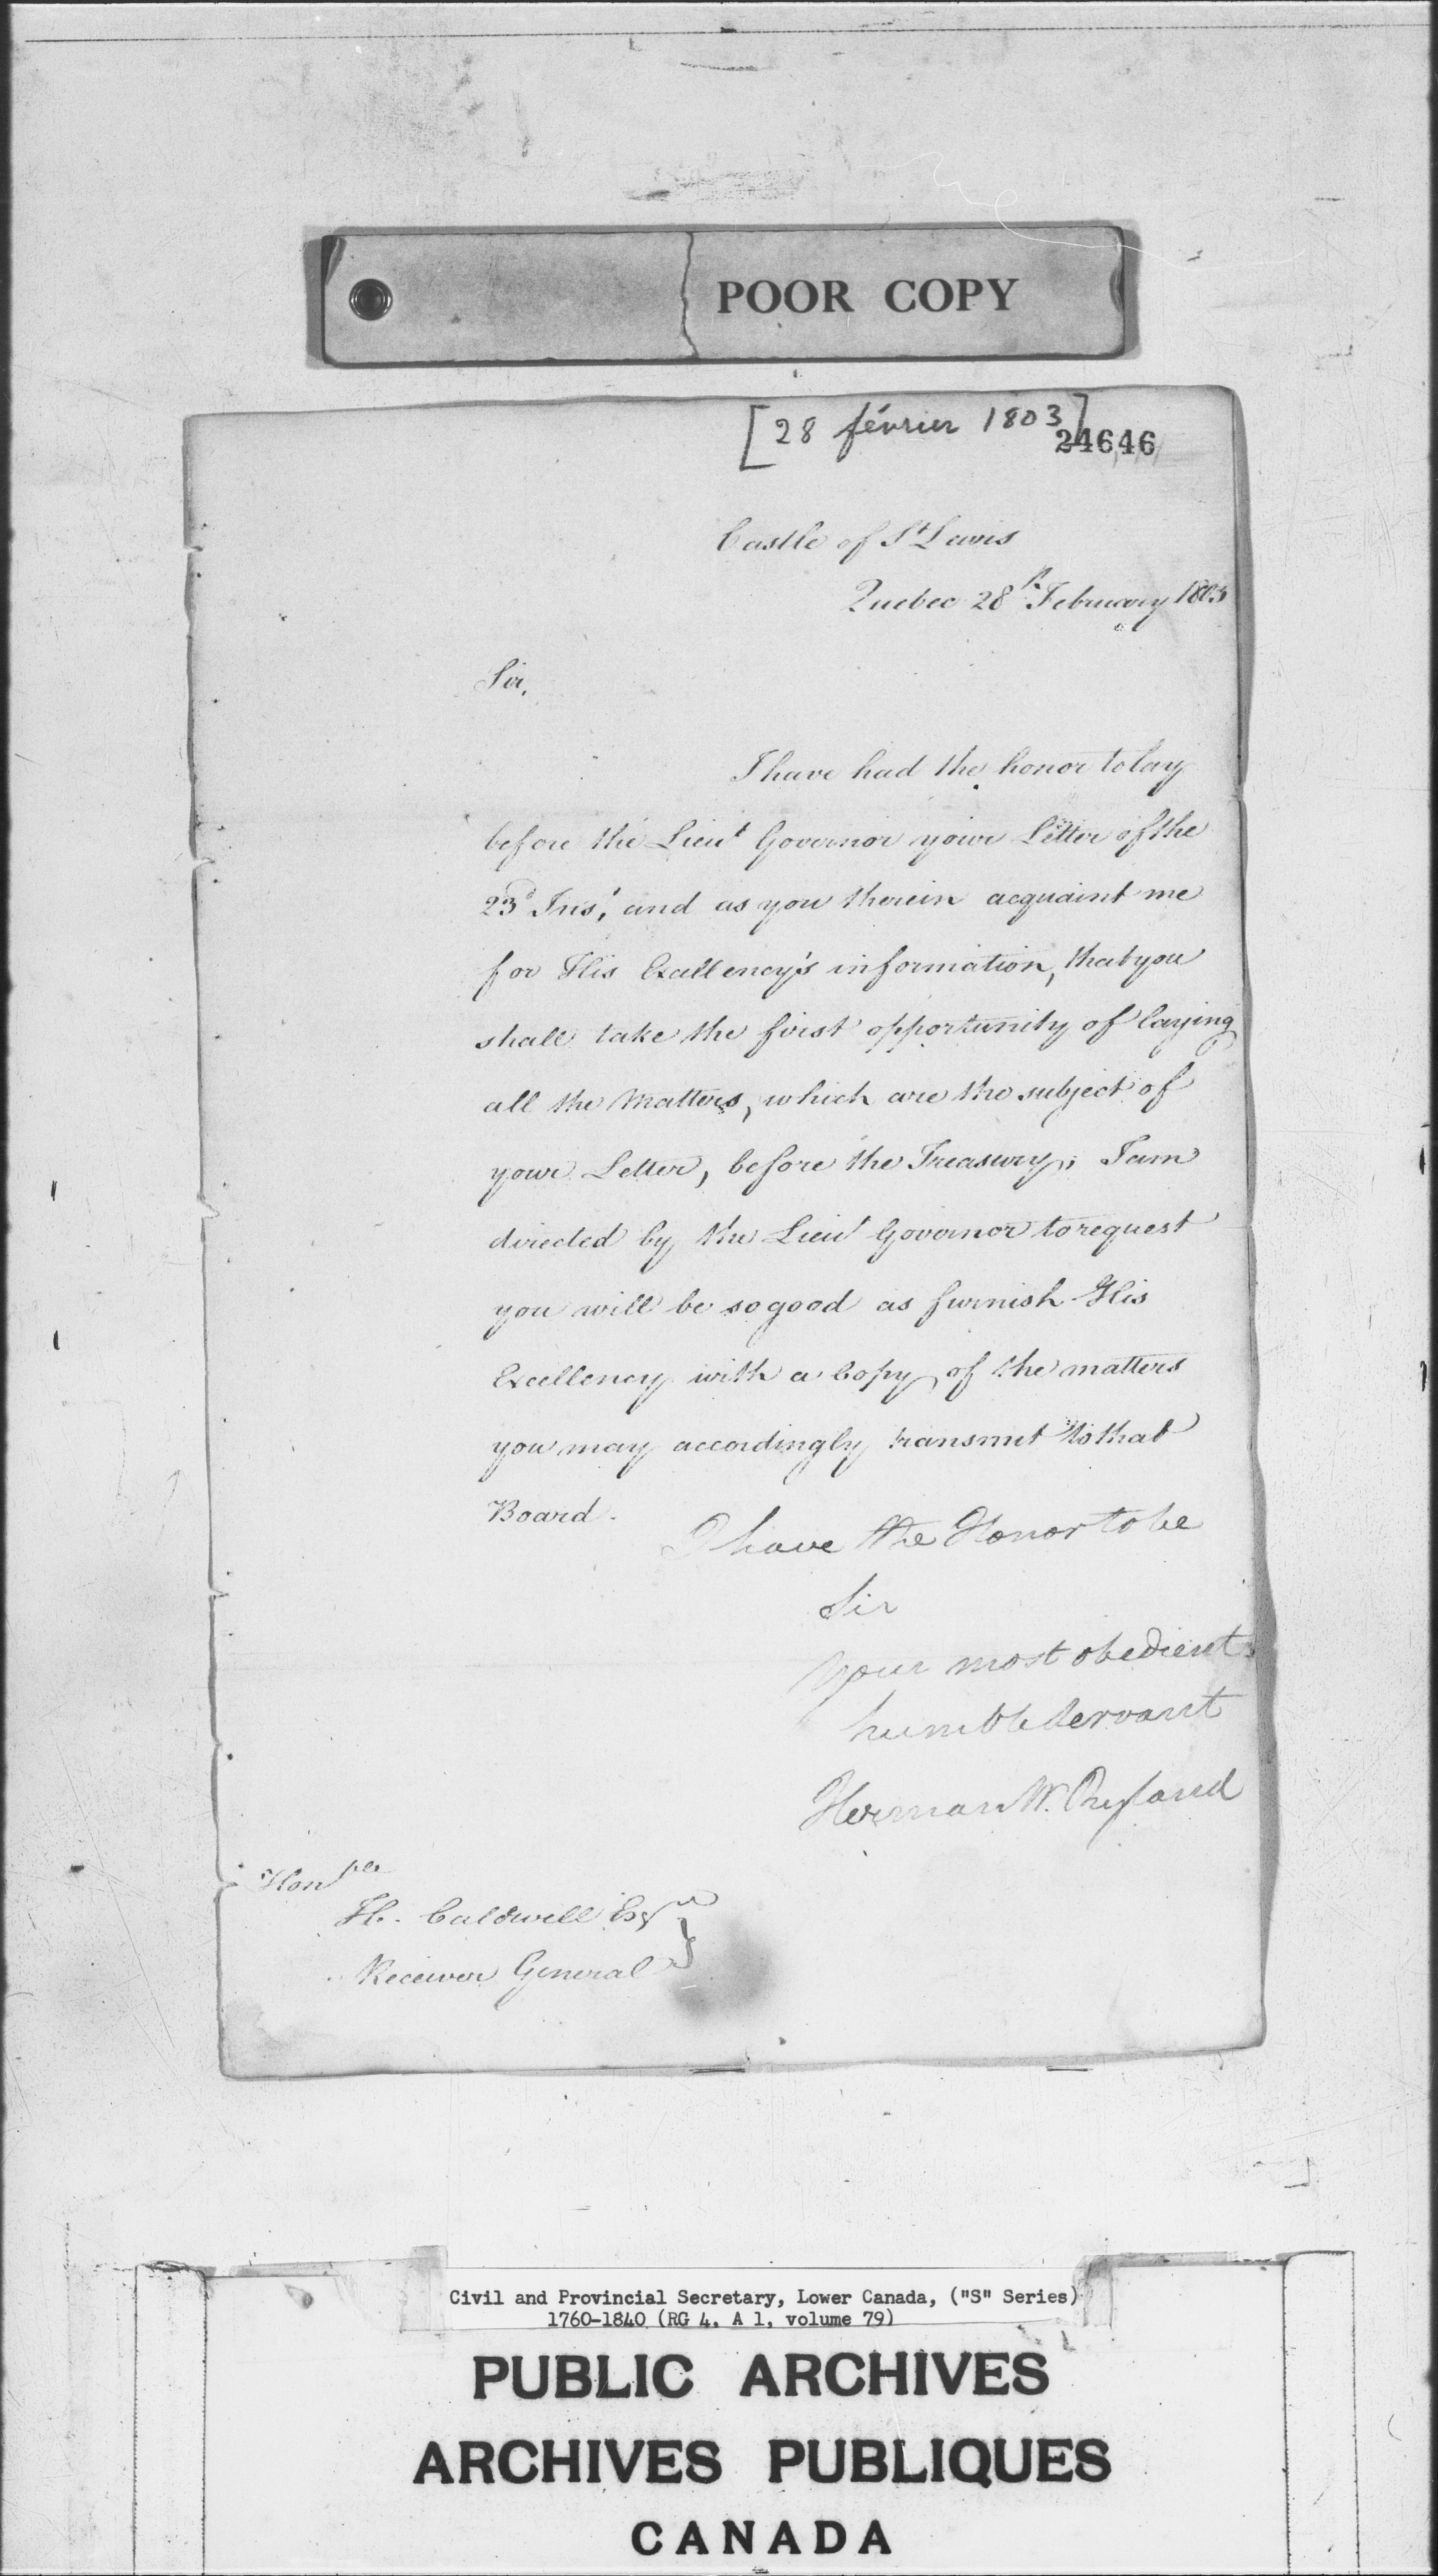 POOR COPY
[28 février 1803]
24646
Castle of St Lewis
Quebec 28th February 1803
Sir,
I have had the honor to lay
before the Lieut Governor your Letter of the
23d Inst, and as you therein acquaint me
for His Excellency's information, that you
shall take the first opportunity of laying
all the Matters, which are the subject of
your Letter, before the Treasury; I am
directed by the Lieut Governor to request
you will be so good as furnish His
Excellency with a Copy of the matters
you may accordingly transmit to that
Board.
I have the Honor to be
Sir
your most obedient
humble Servant
Herman W. Ryland
Honble
H. Caldwell Esqre
Receiver General
Civil and Provincial Secretary, Lower Canada, ("S" Series)
1760-1840 (RG 4, A 1, volume 79)
PUBLIC ARCHIVES
ARCHIVES PUBLIQUES
CANADA